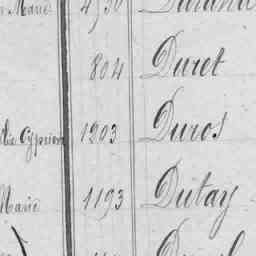 Marie 4730 Durand
804 Duret
Cyprien 1203 Duros
Marie 1193 Dutay